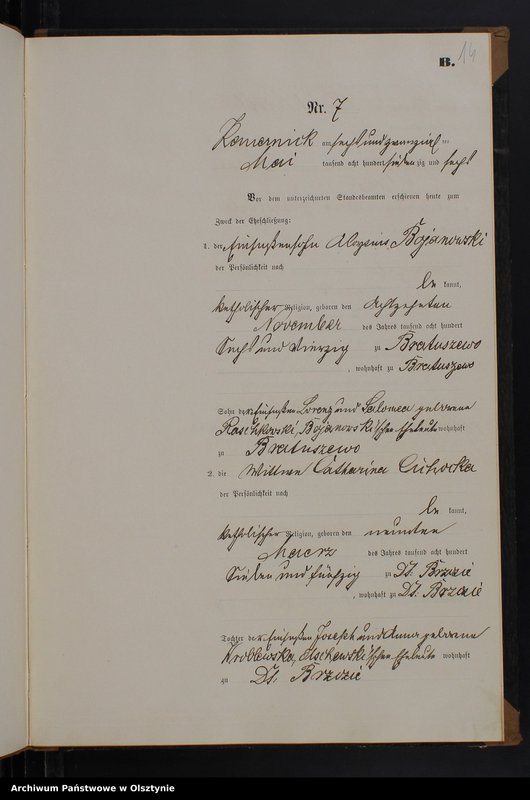 B. 14
Nr. 7
Zomernick am sechs und zwanzigsten
Mai tausend acht hundert siebenzig und sechs
Vor dem unterzeichneten Standesbeamten erschienen heute zum
Zweck der Eheschließung:
1. der Einsassensohn Aloysius Bojanowski
der Persönlichkeit nach
be kannt,
katholischer Religion, geboren den achtzehnten
November des Jahres tausend acht hundert
Sechs und Vierzig zu Bratuszewo
, wohnhaft zu Bratuszewo
Sohn der Einsassen Lorenz und Salomea geborene
Raschkowski, Bojanowski'schen Eheleute wohnhaft
zu Bratuszewo
2. die Wittwe Catharina Cichocka
der Persönlichkeit nach
be kannt,
katholischer Religion, geboren den neunten
Maerz des Jahres tausend acht hundert
Sieben und fünfzig zu Dt. Brzozie
, wohnhaft zu Dt. Brzozie
Tochter der Einsassen Joseph und Anna geborene
Wroblewska, schen Eheleute wohnhaft
zu Dt. Brzozie
Archiwum Państwowe w Olsztynie